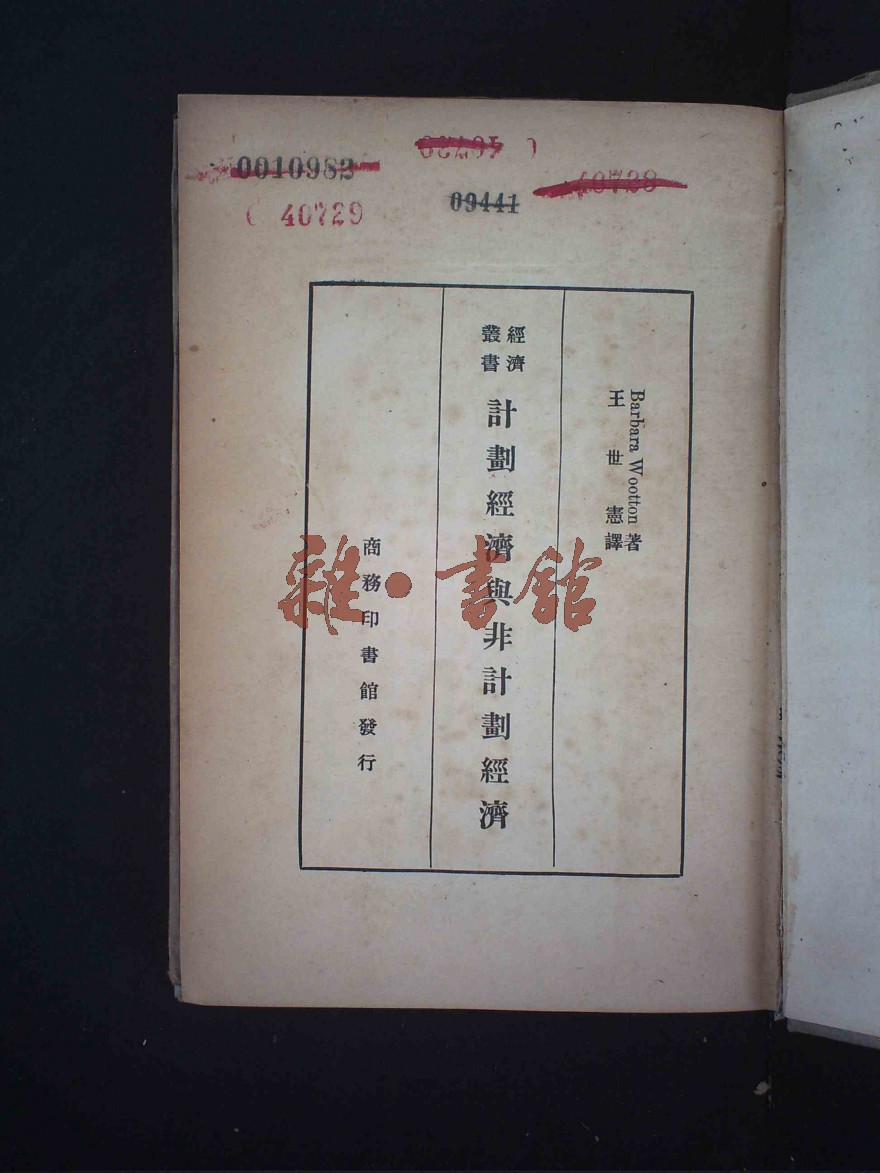 0010982
40738
40729
09441
Barbara Wootton 著
王世憲譯
經濟叢書
計劃經濟與非計劃經濟
商務印書館發行
雜·書館